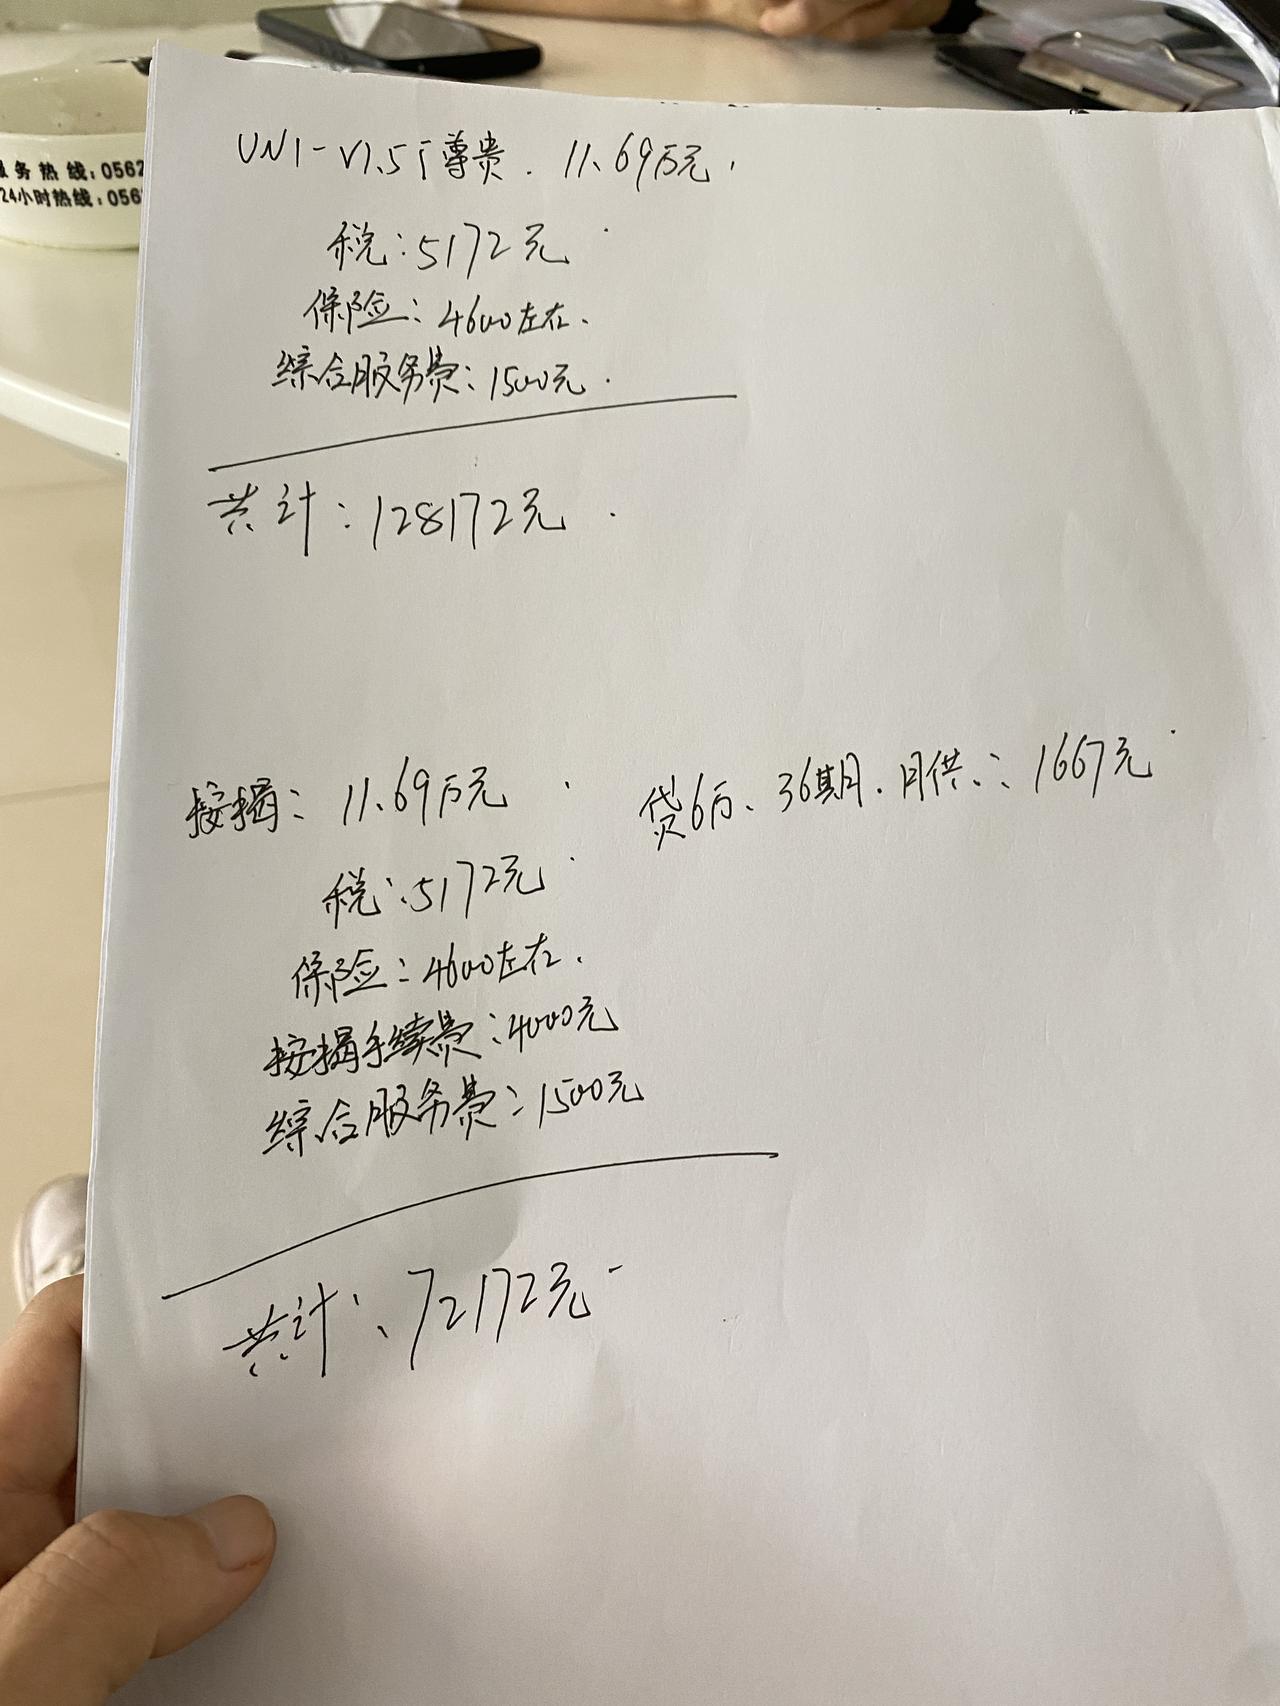 服务热线:0562
24小时热线:056
UNI-V1.5T尊贵. 11.69万元.
税:5172元
保险:4600左右.
综合服务费:1500元.
共计:128172元.
按揭:11.69万元 贷6万、36期.月供:1667元
税:5172元
保险:4600左右.
按揭手续费:4000元
综合服务费:1500元
共计:72172元